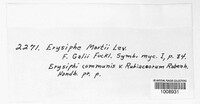 2271. Erysiphe Martii Lev.
F. Galii Fuckl. Symb. myc. I, p. 84.
Erysiphi communis v. Rubiacearum Rabenh.
Handb. pr. p.
1008931